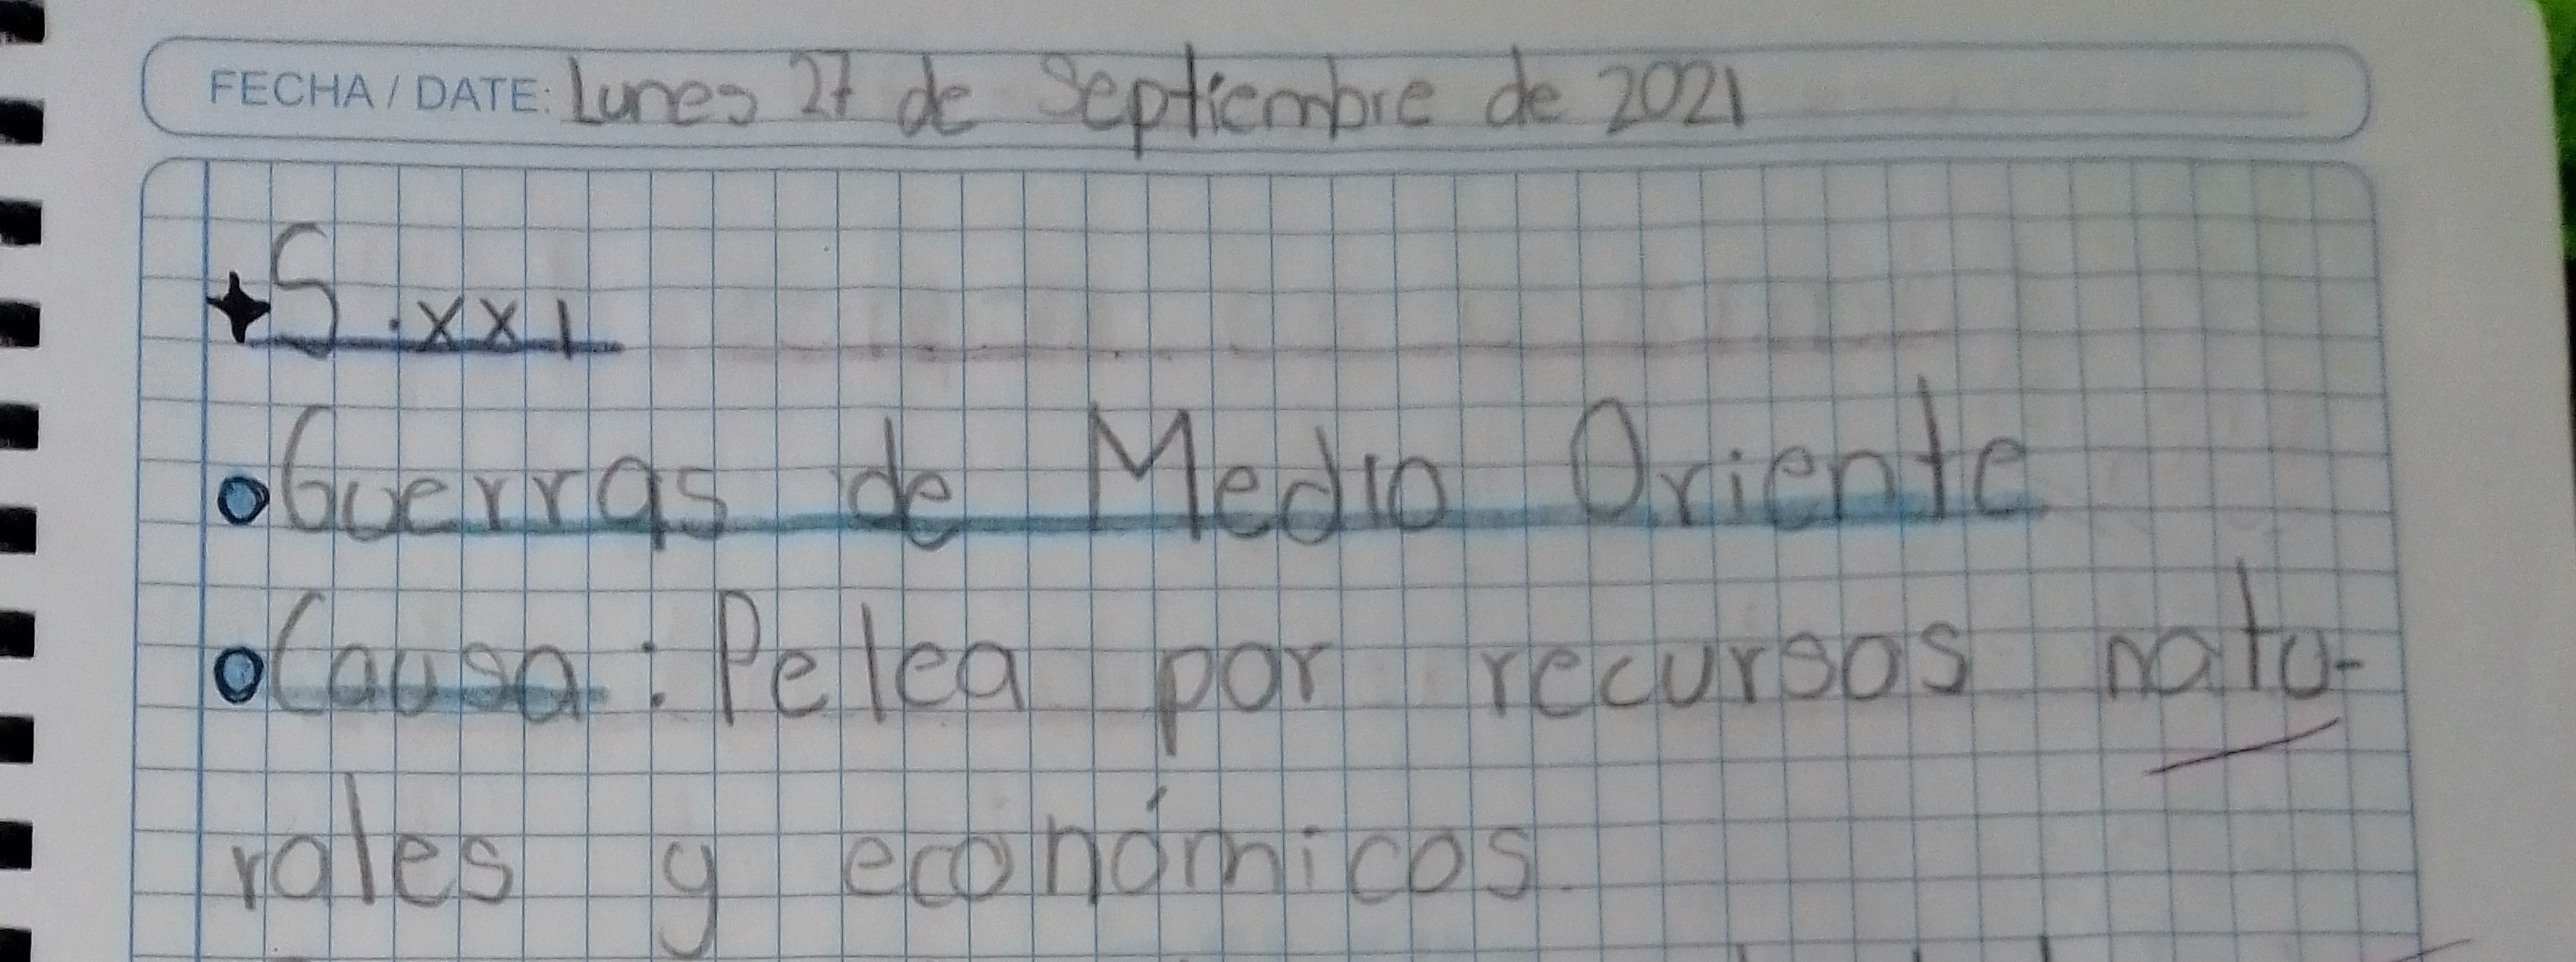 FECHA / DATE: Lunes 27 de Septiembre de 2021
S.XXI
Guerras de Medio Oriente
Causa: Pelea por recursos natu-
rales y económicos.